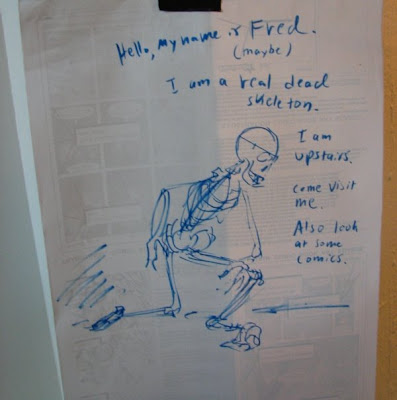 Hello, my name is Fred.
(maybe)
I am a real dead
skeleton.
I am
upstairs.
come visit
me.
Also look
at some
comics.